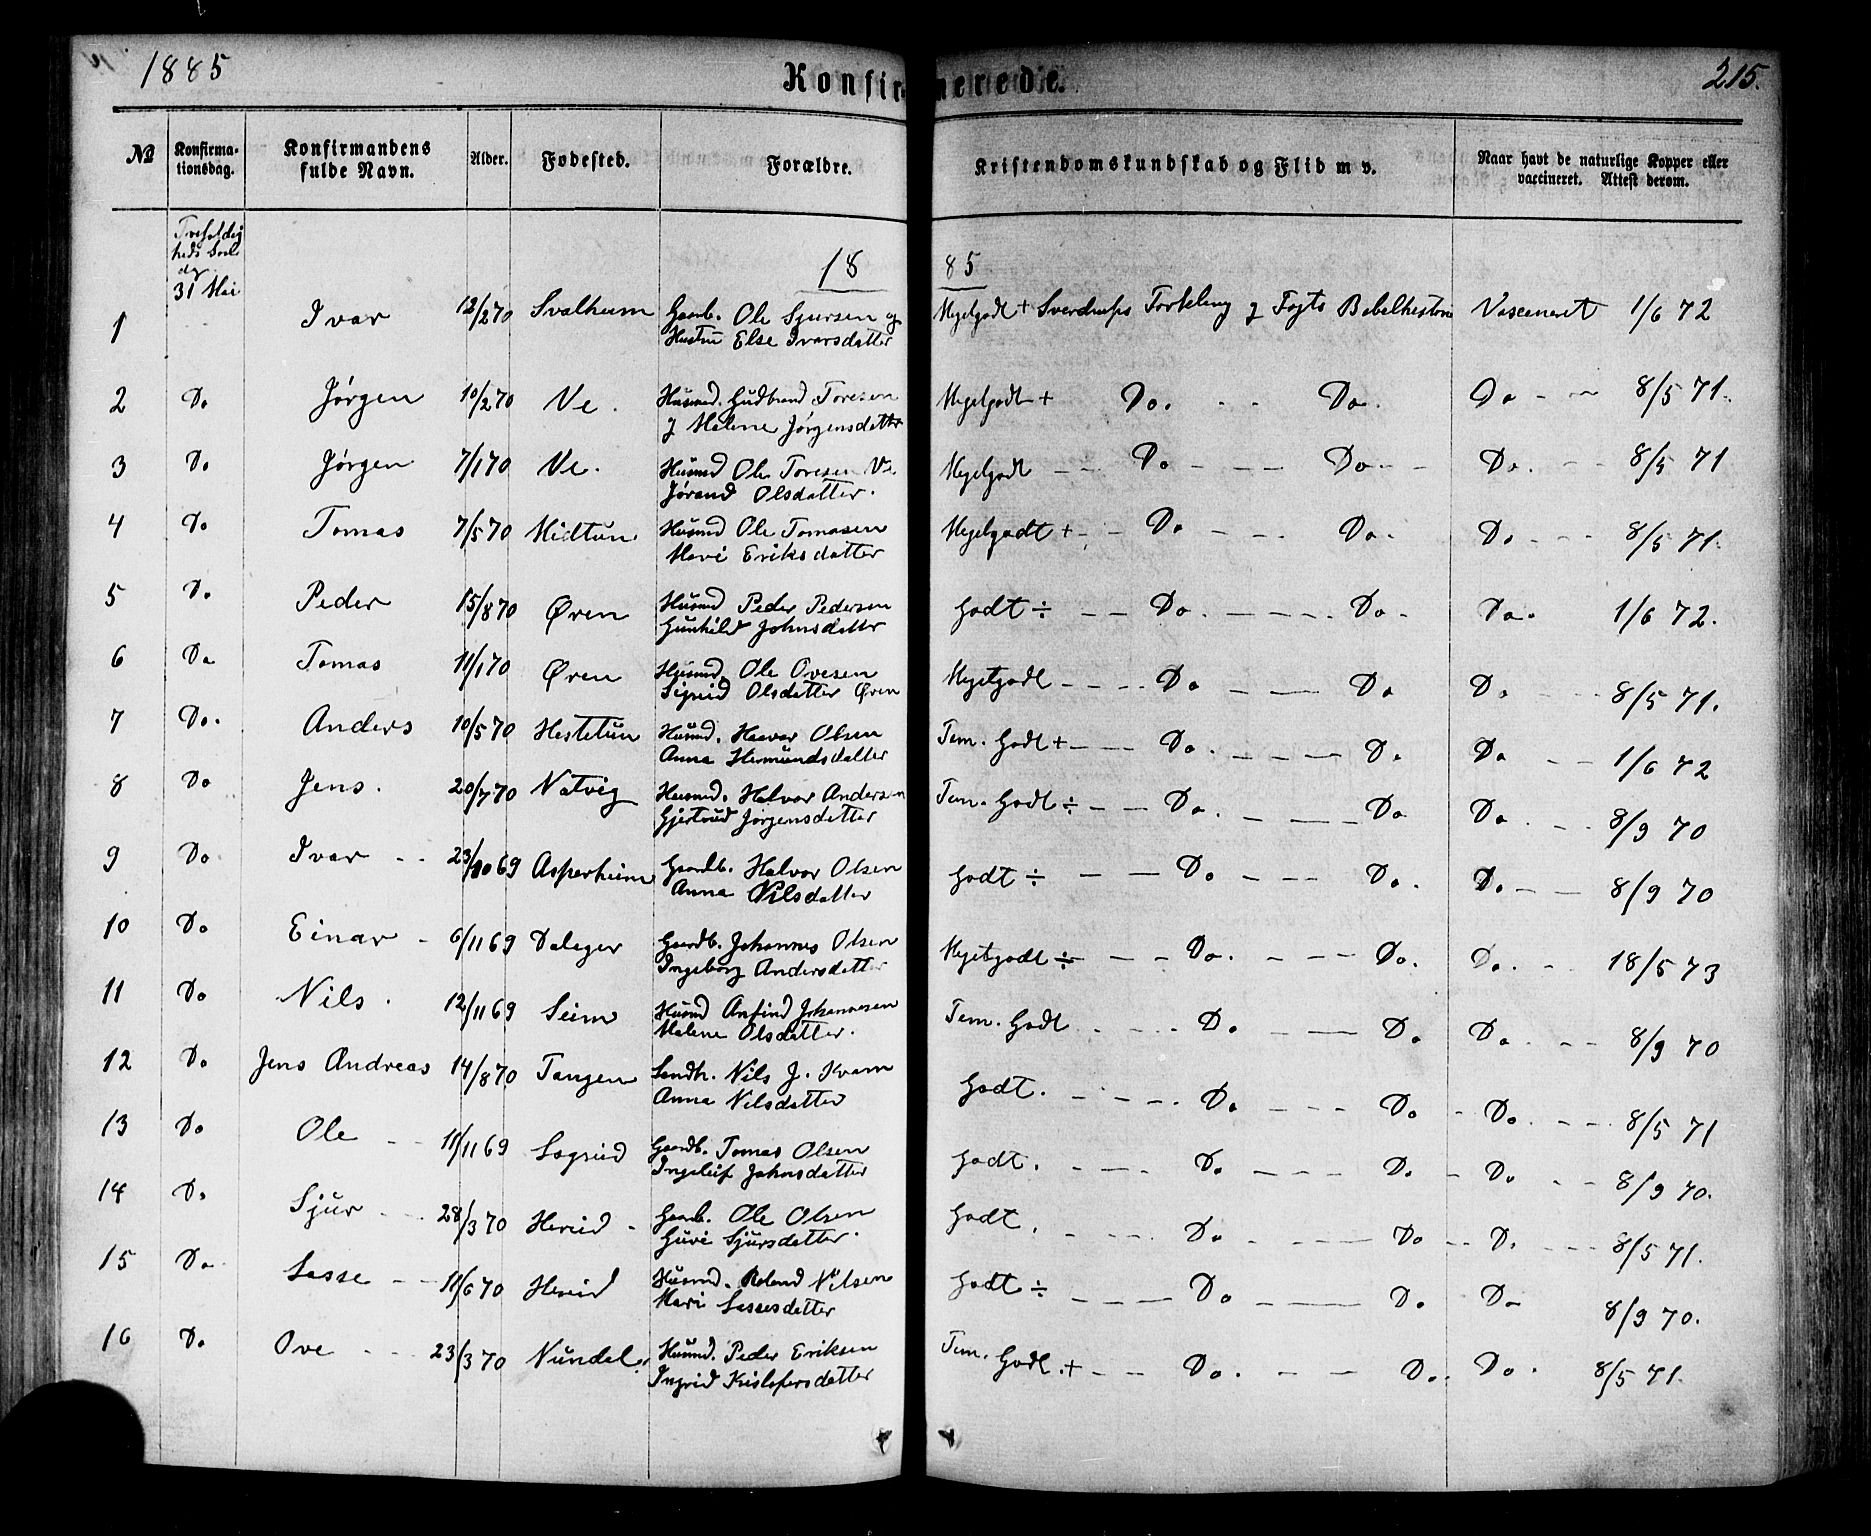 1885
Konfirmerede.
215.
№
Konfirma-
tionsdag.
Konfirmandens
fulde Navn.
Alder.
Fødested.
Forældre.
Kristendomskundskab og Flid m v.
Naar havt de naturlige Kopper eller
vaccineret. Attest derom.
18 85
31 Mai
1 Ivar 12/2 70 Svalheim Gaardb. Ole Sjursen og Meget godt + Sverdrups Forkling g Fogts Bibelhistorie Vaccineret 1/6 72
Hustru Else Ivarsdatter
2 Do Jørgen 10/2 70 Ve. Husmd. Gudbrand Toresen Meget godt + Do. - - Do. Do - - 8/5 71.
g Malene Jørgensdatter
3 Do Jørgen 7/1 70 Ve. Husmd Ole Toresen Ve Meget godt - - Do - - - Do - - Do. - - 8/5 71
Jørand Olsdatter.
4 Do Tomas 7/5 70 Midtun Husmd Ole Tomasen Meget godt + - - Do - - - Do. - Do - - - 8/5 71.
Mari Eriksdatter
5 Do Peder 15/8 70 Øren Husmd Peder Pedersen Godt ÷ - - Do. - - - - Do - Do. 1/6 72.
Gunhild Johnsdatter
6 Do Tomas 11/1 70 Øren Husmd. Ole Ovesen Meget godt - - - - Do - - - Do Do - - - 8/5 71.
Sigrid Olsdatter Øren
7 Do. Anders 10/5 70 Hestetun Husmd. Haavar Olsen Tem. Godt + - - - Do. - - - - Do Do - - 1/6 72
Anna Hermundsdatter
8 Do Jens. 20/7 70 Natvig Husmd. Halvor Andersen Tem. Godt ÷ - - - Do. - - - - Do Do. - - 8/9 70
Gjertrud Jørgensdatter
9 Do Ivar - - 23/10 69 Asperheim Gaardb. Halvor Olsen Godt ÷ - - Do - - - Do. Do - - 8/9 70
Anna Nilsdatter
10 Do Einar - 6/11 69 Dalager Gaardb. Johannes Olsen Meget godt ÷ - - - Do. - - - Do. Do. - - 18/5 73
Ingeborg Andersdatter
11 Do Nils. 12/11 69 Seim Husmd Anfind Johannesen Tem. Godt - - - - Do - - - Do Do - - - 8/9 70
Malene Olsdatter.
12 Do Jens Andreas 14/8 70 Tangen Sandh. Nils J. Kvam Godt. - - - - Do - - - Do - Do. - - - 8/5 71
Anna Nilsdatter
13 Do Ole - - 11/11 69 Sogrud Gaardb. Tomas Olsen Godt. - - - - Do - - - Do - Do - - 8/9 70.
Ingeleif Johnsdatter
14 Do Sjur - - - 28/3 70 Herud - Gaardb. Ole Olsen Godt. - - - - Do - - - - Do - - Do - - - 8/5 71.
Guri Sjursdatter.
15 Do Lasse - - 11/6 70 Herud Husmd. Roland Nilsen Godt ÷ - - - - Do - - - - Do Do 8/9 70.
Mari Lassesdatter
16 Do Ove - - - 23/3 70 Nundal Husmd. Peder Eriksen Tem. Godt + - - Do. - - Do. Do. 8/5 71.
Ingrid Kristofersdatter